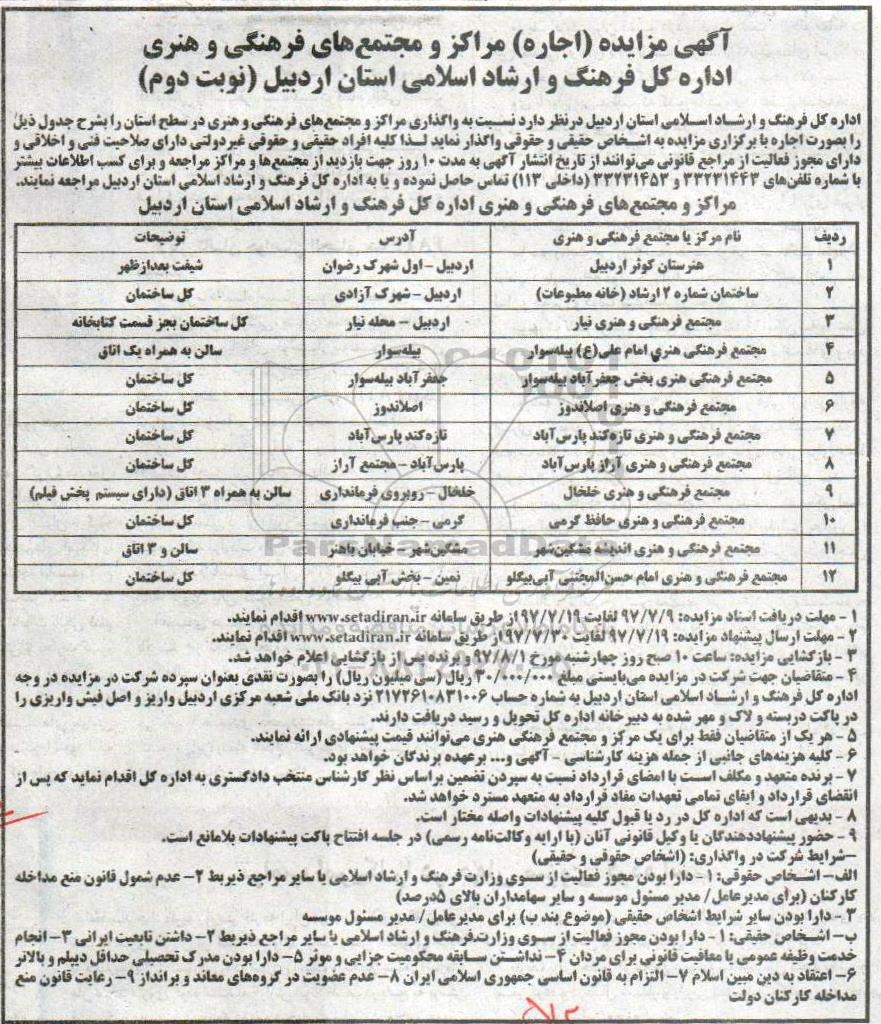 آگهی مزایده (اجاره) مراکز و مجتمع‌های فرهنگی و هنری
اداره کل فرهنگ و ارشاد اسلامی استان اردبیل (نوبت دوم)
اداره کل فرهنگ و ارشاد اسلامی استان اردبیل درنظر دارد نسبت به واگذاری مراکز و مجتمع‌های فرهنگی و هنری در سطح استان را بشرح جدول ذیل
را بصورت اجاره با برگزاری مزایده به اشخاص حقیقی و حقوقی واگذار نماید لذا کلیه افراد حقیقی و حقوقی غیردولتی دارای صلاحیت فنی و اخلاقی و
دارای مجوز فعالیت از مراجع قانونی می‌توانند از تاریخ انتشار آگهی به مدت ۱۰ روز جهت بازدید از مجتمع‌ها و مراکز مراجعه و برای کسب اطلاعات بیشتر
با شماره تلفن‌های ۳۳۲۳۱۴۴۳ و ۳۳۲۳۱۴۵۳ (داخلی ۱۱۳) تماس حاصل نموده و یا به اداره کل فرهنگ و ارشاد اسلامی استان اردبیل مراجعه نمایند.
مراکز و مجتمع‌های فرهنگی و هنری اداره کل فرهنگ و ارشاد اسلامی استان اردبیل
ردیف نام مرکز یا مجتمع فرهنگی و هنری آدرس توضیحات
۱ هنرستان کوثر اردبیل اردبیل - اول شهرک رضوان شیفت بعدازظهر
۲ ساختمان شماره ۲ ارشاد (خانه مطبوعات) اردبیل - شهرک آزادی کل ساختمان
۳ مجتمع فرهنگی و هنری نیار اردبیل - محله نیار کل ساختمان بجز قسمت کتابخانه
۴ مجتمع فرهنگی هنری امام علی(ع) بیله‌سوار بیله‌سوار سالن به همراه یک اتاق
۵ مجتمع فرهنگی هنری بخش جعفرآباد بیله‌سوار جعفرآباد بیله‌سوار کل ساختمان
۶ مجتمع فرهنگی و هنری اصلاندوز اصلاندوز کل ساختمان
۷ مجتمع فرهنگی و هنری تازه‌کند پارس‌آباد تازه‌کند پارس‌آباد کل ساختمان
۸ مجتمع فرهنگی و هنری آراز پارس‌آباد پارس‌آباد - مجتمع آراز کل ساختمان
۹ مجتمع فرهنگی و هنری خلخال خلخال - روبروی فرمانداری سالن به همراه ۳ اتاق (دارای سیستم پخش فیلم)
۱۰ مجتمع فرهنگی و هنری حافظ گرمی گرمی - جنب فرمانداری کل ساختمان
۱۱ مجتمع فرهنگی و هنری اندیشه مشگین‌شهر مشگین‌شهر - خیابان باهنر سالن و ۳ اتاق
۱۲ مجتمع فرهنگی و هنری امام حسن‌المجتبی آبی‌بیگلو نمین - بخش آبی بیگلو کل ساختمان
ParsNamadData
۱ - مهلت دریافت اسناد مزایده: ۹۷/۷/۹ لغایت ۹۷/۷/۱۹ از طریق سامانه www.setadiran.ir اقدام نمایند.
۲ - مهلت ارسال پیشنهاد مزایده: ۹۷/۷/۱۹ لغایت ۹۷/۷/۳۰ از طریق سامانه www.setadiran.ir اقدام نمایند.
۳ - بازگشایی مزایده: ساعت ۱۰ صبح روز چهارشنبه مورخ ۹۷/۸/۱ و برنده پس از بازگشایی اعلام خواهد شد.
۴ - متقاضیان جهت شرکت در مزایده می‌بایستی مبلغ ۳۰/۰۰۰/۰۰۰ ریال (سی میلیون ریال) را بصورت نقدی بعنوان سپرده شرکت در مزایده در وجه
اداره کل فرهنگ و ارشاد اسلامی استان اردبیل به شماره حساب ۲۱۷۲۶۱۰۸۳۱۰۰۶ نزد بانک ملی شعبه مرکزی اردبیل واریز و اصل فیش واریزی را
در پاکت دربسته و لاک و مهر شده به دبیرخانه اداره کل تحویل و رسید دریافت دارند.
۵ - هر یک از متقاضیان فقط برای یک مرکز و مجتمع فرهنگی هنری می‌توانند قیمت پیشنهادی ارائه نمایند.
۶ - کلیه هزینه‌های جانبی از جمله هزینه کارشناسی - آگهی و... برعهده برندگان خواهد بود.
۷ - برنده متعهد و مکلف است با امضای قرارداد نسبت به سپردن تضمین براساس نظر کارشناس منتخب دادگستری به اداره کل اقدام نماید که پس از
انقضای قرارداد و ایفای تمامی تعهدات مفاد قرارداد به متعهد مسترد خواهد شد.
۸ - بدیهی است که اداره کل در رد یا قبول کلیه پیشنهادات واصله مختار است.
۹ - حضور پیشنهاددهندگان یا وکیل قانونی آنان (با ارایه وکالت‌نامه رسمی) در جلسه افتتاح پاکت پیشنهادات بلامانع است.
-شرایط شرکت در واگذاری: (اشخاص حقوقی و حقیقی)
الف- اشخاص حقوقی: ۱ - دارا بودن مجوز فعالیت از سوی وزارت فرهنگ و ارشاد اسلامی یا سایر مراجع ذیربط ۲- عدم شمول قانون منع مداخله
کارکنان (برای مدیرعامل/ مدیر مسئول موسسه و سایر سهامداران بالای ۵درصد)
۳ - دارا بودن سایر شرایط اشخاص حقیقی (موضوع بند ب) برای مدیرعامل/ مدیر مسئول موسسه
ب- اشخاص حقیقی: ۱ - دارا بودن مجوز فعالیت از سوی وزارت فرهنگ و ارشاد اسلامی یا سایر مراجع ذیربط ۲- داشتن تابعیت ایرانی ۳- انجام
خدمت وظیفه عمومی یا معافیت قانونی برای مردان ۴- نداشتن سابقه محکومیت جزایی و موثر ۵- دارا بودن مدرک تحصیلی حداقل دیپلم و بالاتر
۶- اعتقاد به دین مبین اسلام ۷- التزام به قانون اساسی جمهوری اسلامی ایران ۸- عدم عضویت در گروه‌های معاند و برانداز ۹- رعایت قانون منع
مداخله کارکنان دولت